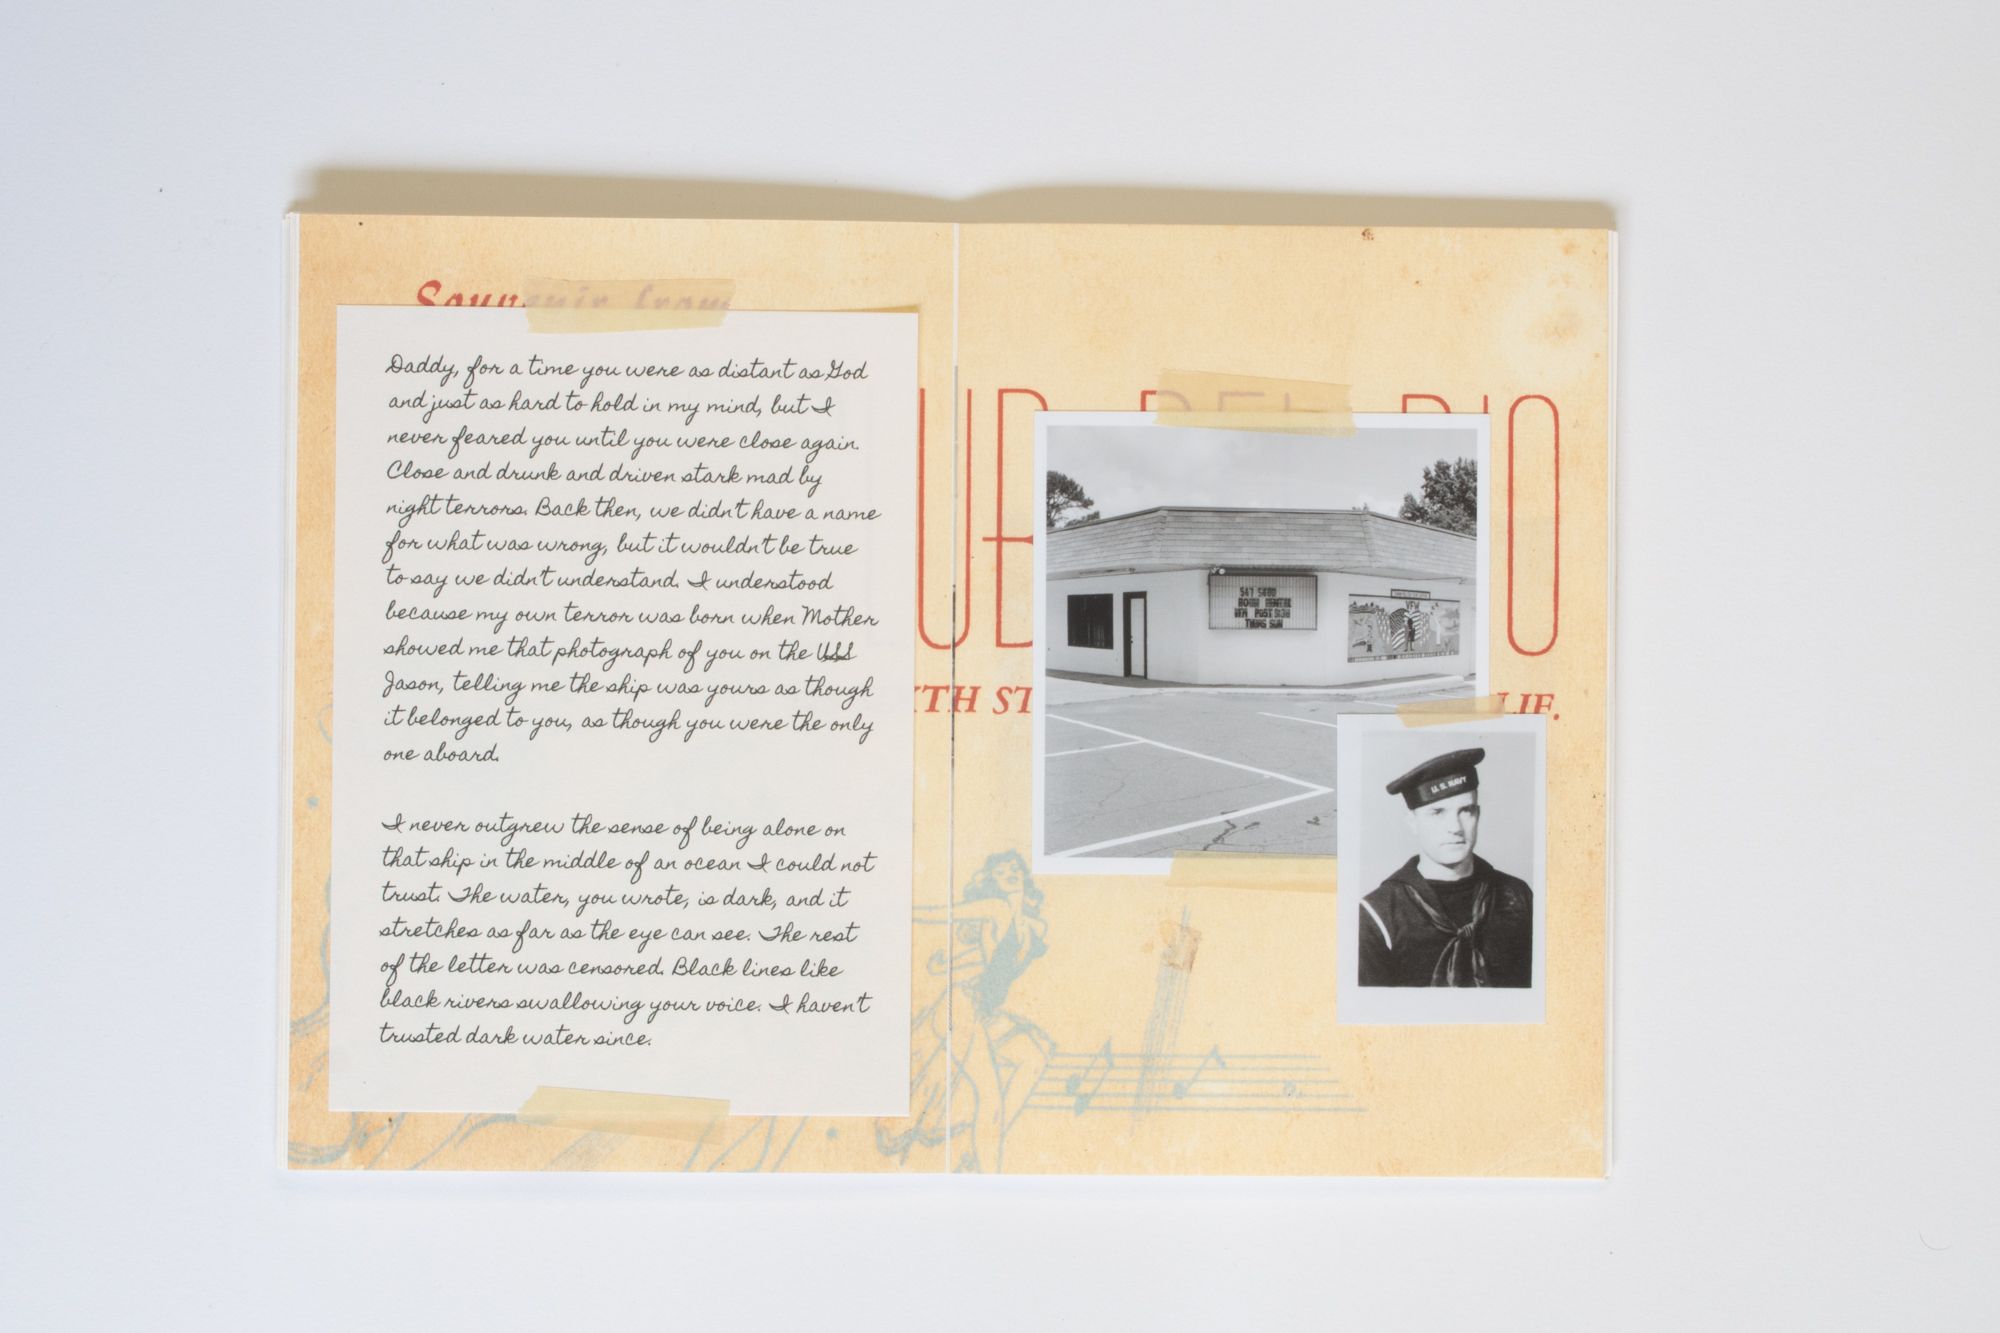 Souvenir from
Daddy, for a time you were as distant as God
and just as hard to hold in my mind, but I
never feared you until you were close again.
Close and drunk and driven stark mad by
night terrors. Back then, we didn't have a name
for what was wrong, but it wouldn't be true
to say we didn't understand. I understood
because my own terror was born when Mother
showed me that photograph of you on the USS
Jason, telling me the ship was yours as though
it belonged to you, as though you were the only
one aboard.
I never outgrew the sense of being alone on
that ship in the middle of an ocean I could not
trust. The water, you wrote, is dark, and it
stretches as far as the eye can see. The rest
of the letter was censored. Black lines like
black rivers swallowing your voice. I haven't
trusted dark water since.
UB DEL RIO
TH ST LIF.
547 5480
ROOM RENTAL
VFW POST 5131
THURS SUN
VFW
U. S. NAVY